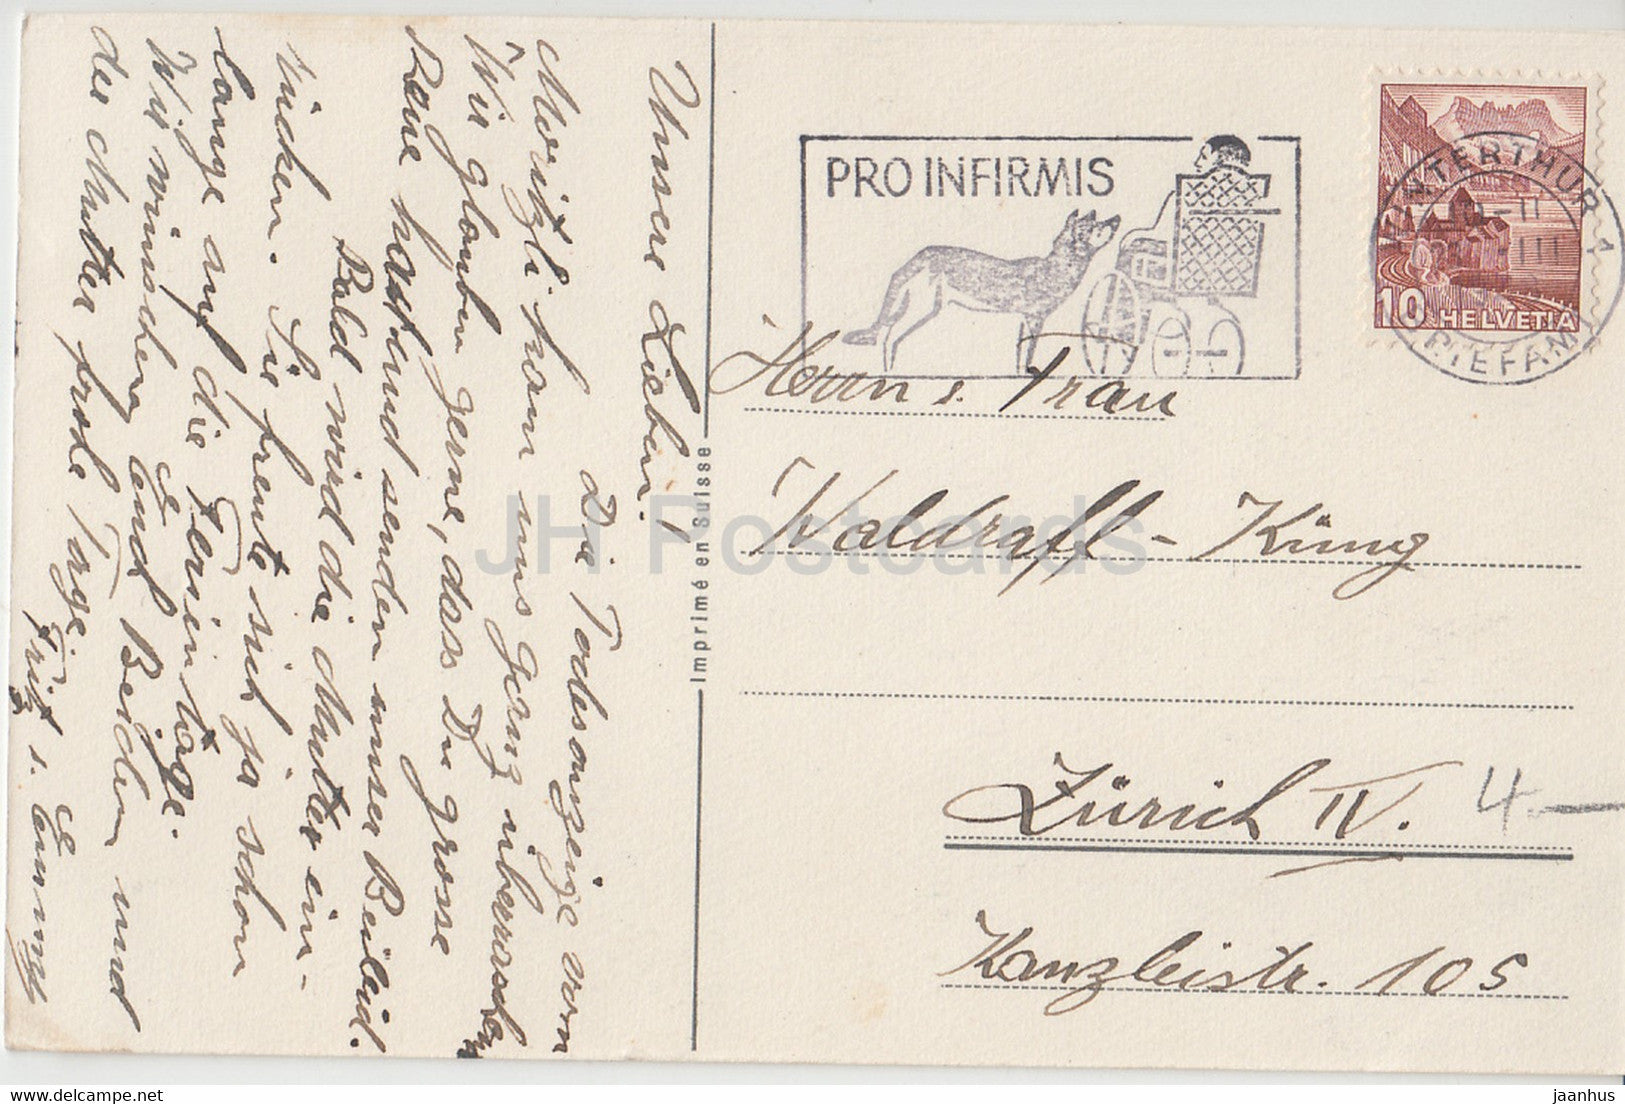 Unsere Lieben!
Die Todesanzeige vom
Moritzli kam uns ganz überraschend
Wir glauben gerne, dass Du grosse
hast und senden unser Beileid.
Bald wird die Mutter ein-
rücken. Sie freute sich ja schon
lange auf die Ferientage.
Wir wünschen Euch Beiden und
der Mutter frohe Tage.
Fritz u. Emmy
Imprimé en Suisse
PRO INFIRMIS
WINTERTHUR 1
10
HELVETIA
Herrn u. Frau
Waldraff-Küng
Zürich IV. 4.—
Kanzleistr. 105
JH Postcards
jaanhus